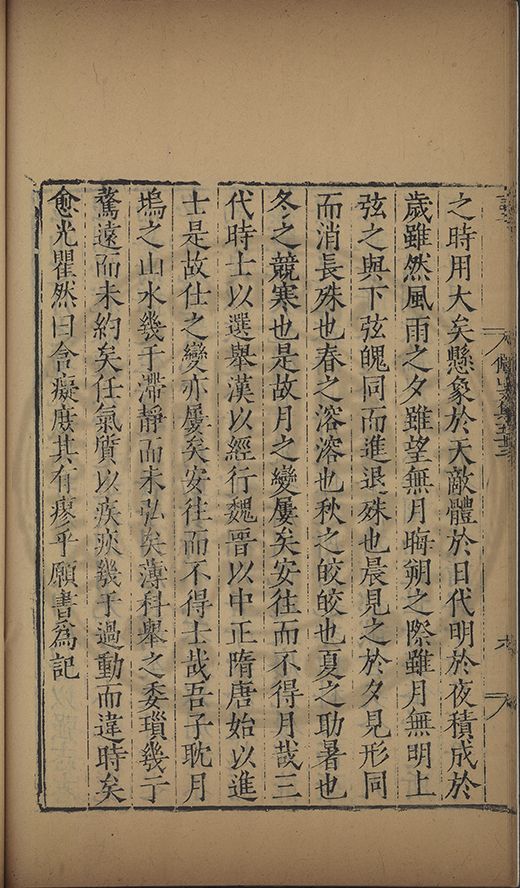 之時用大矣懸象於天敵體於日代明於夜積成於
歲雖然風雨之夕雖望無月晦朔之際雖月無明上
弦之與下弦魄同而進退殊也晨見之於夕見形同
而消長殊也春之溶溶也秋之皎皎也夏之助暑也
冬之競寒也是故月之變屢矣安往而不得月哉三
代時士以選舉漢以經行魏晉以中正隋唐始以進
士是故仕之變亦屢矣安往而不得士哉吾子耽月
塢之山水幾于滯靜而未弘矣薄科舉之委瑣幾丁
騖遠而未約矣任氣質以疾疢幾于過動而違時矣
愈光瞿然曰含癡庶其有瘳乎願書為記